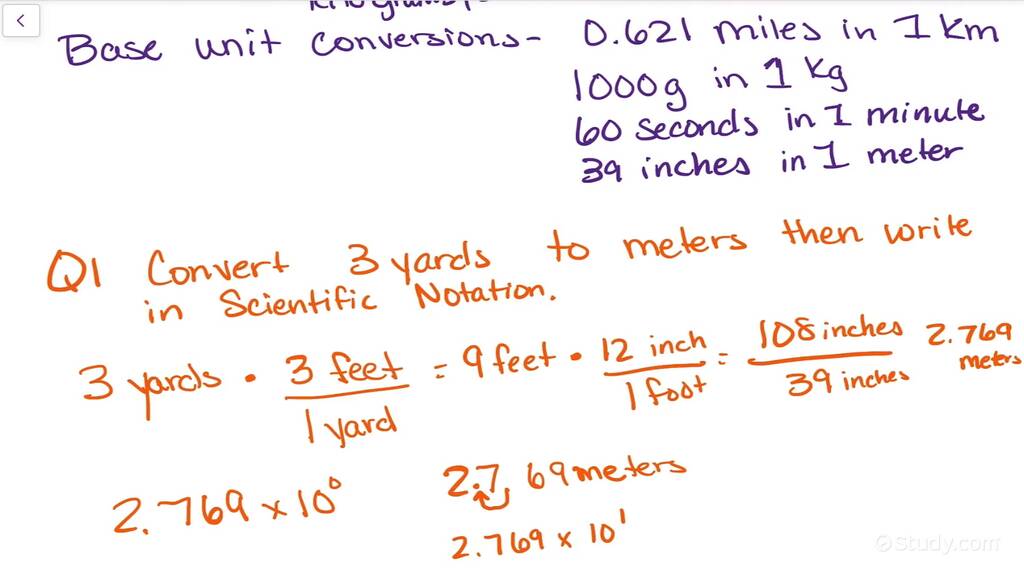 Base unit conversions- 0.621 miles in 1 Km
1000g in 1 Kg
60 seconds in 1 minute
39 inches in 1 meter
Q1 Convert 3 yards to meters then write
in Scientific Notation.
3 yards · 3 feet / 1 yard = 9 feet · 12 inch / 1 foot = 108 inches / 39 inches 2.769 meters
2.769 x 10⁰
2.7 69 meters
2.769 x 10¹
Study.com